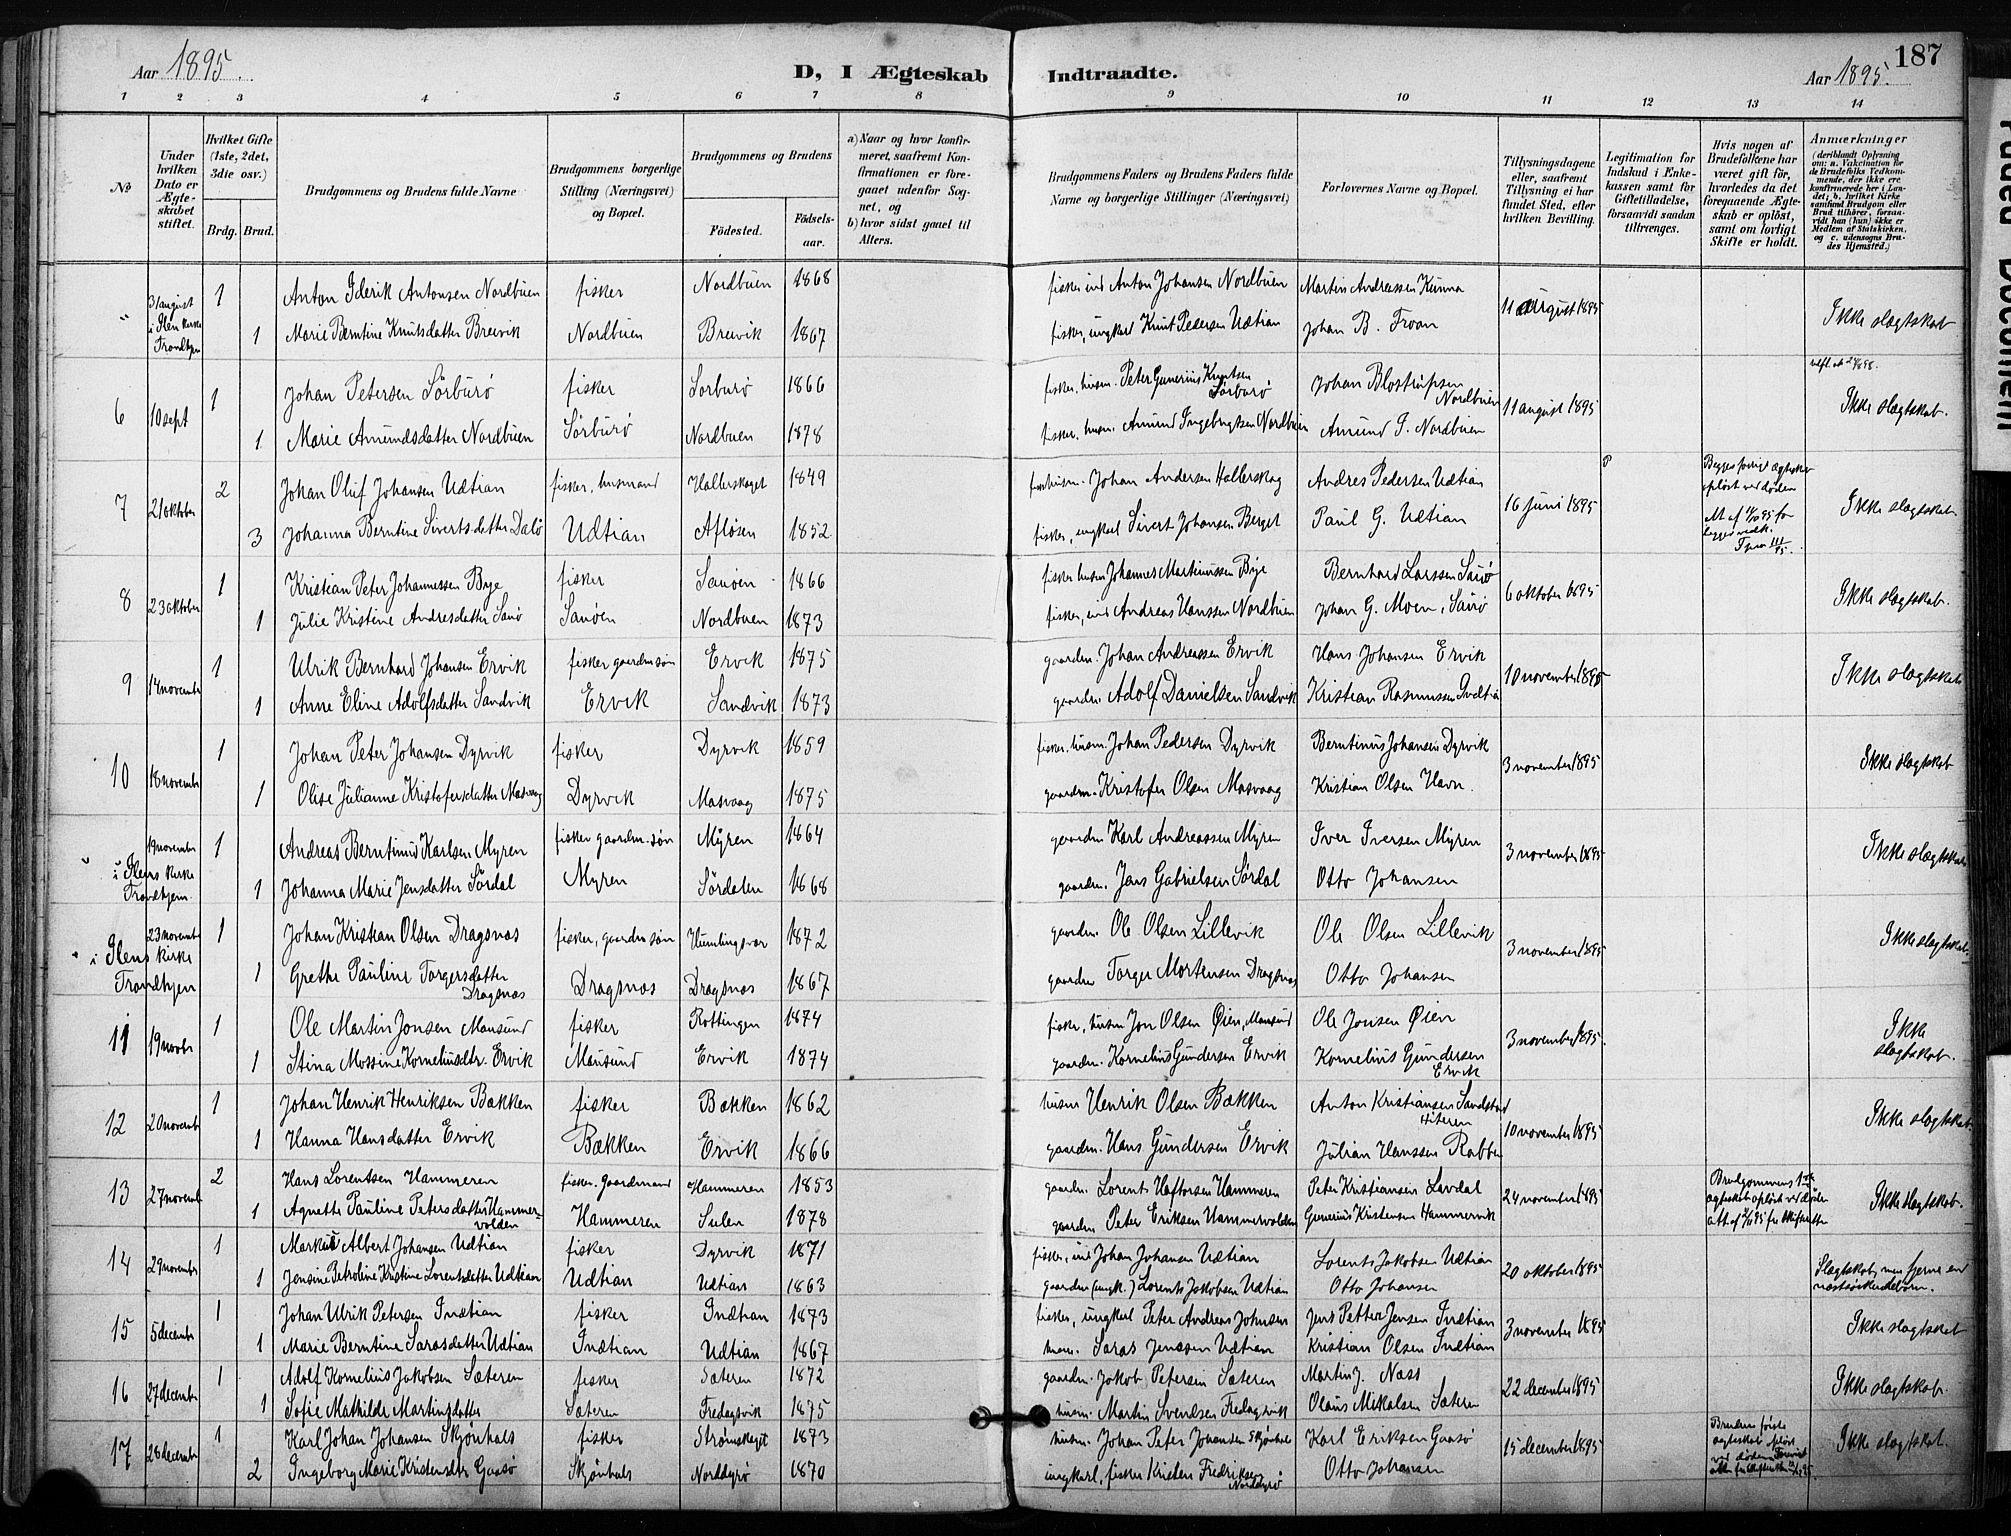 Aar 1895. D, I Ægteskab Indtraadte. Aar 1895. 187
1 2 3 4 5 6 7 8 9 10 11 12 13 14
No
Under hvilken Dato er Ægteskabet stiftet.
Hvilket Gifte (1ste, 2det, 3die osv.)
Brdg. Brud.
Brudgommens og Brudens fulde Navne
Brudgommens borgerlige Stilling (Næringsvei) og Bopæl.
Brudgommens og Brudens
Födested. Födsels-aar.
a) Naar og hvor konfirmeret, saafremt Konfirmationen er foregaaet udenfor Sognet, og
b) hvor sidst gaaet til Alters.
Brudgommens Faders og Brudens Faders fulde Navne og borgerlige Stillinger (Næringsvei)
Forlovernes Navne og Bopæl.
Tillysningsdagene eller, saafremt Tillysning ei har fundet Sted, efter hvilken Bevilling.
Legitimation for Indskud i Enkekassen samt for Giftetilladelse, forsaavidt saadan tiltrænges.
Hvis nogen af Brudefolkene har været gift för, hvorledes da det foregaaende Ægteskab er oplöst, samt om lovligt Skifte er holdt.
Anmærkninger (deriblandt Oplysning om: a. Vakcination for de Brudefolks Vedkommende, der ikke ere konfirmerede her i Landet; b. hvilket Kirkesamfund Brudgom eller Brud tilhörer, forsaavidt han (hun) ikke er Medlem af Statskirken, og c. udensogns Brudes Hjemsted.)
" 31 august i Ilen kirke Trondhjem 1 Anton Iderik Antonsen Nordbuen fisker Nordbuen 1868 fisker ind Anton Johansen Nordbuen Martin Andreassen Kunna 11 august 1895 Ikke slægtskab
1 Marie Berntine Knutsdatter Breivik Nordbuen Breivik 1867 fisker, ungkarl Knut Pedersen Udtian Johan B. Froan
6 10 sept 1 Johan Petersen Sörburö fisker Sorburö 1866 fisker, husm. Peter Gunerius Knutsen Sörburö Johan Blostrupsen Nordbuen 11 august 1895 Ikke slægtskab.
1 Marie Amundsdatter Nordbuen Sörburö Nordbuen 1878 fisker, husm. Amund Ingebrigtsen Nordbuen Amund I. Nordbuen
7 21 oktober 2 Johan Oluf Johansen Udtian fisker, husmand Hallerskaget 1849 Johan Andersen Hallerskag Andres Pedersen Udtian 16 juni 1895 Begges forrige ægteskab opløst ved døden Ikke slægtskab.
3 Johanna Berntine Sivertsdatter Dalö Udtian Afløsen 1852 fisker, ungkarl Sivert Johansen Berget Paul G. Udtian
8 23 oktober 1 Kristian Peter Johannessen Bye fisker Sauöen 1866 fisker husm Johannes Martinussen Bye Bernhard Larssen Sauö 6 oktober 1895 Ikke slægtskab.
1 Julie Kristine Andresdatter Sauö Sauöen Nordbuen 1873 fisker, ind Andreas Hanssen Nordbuen Johan G. Moen, Sauö
9 14 novembr 1 Ulrik Bernhard Johansen Ervik fisker gaardm søn Ervik 1875 gaardm. Johan Andreassen Ervik Hans Johansen Ervik 10 november 1895 Ikke slægtskab
1 Anne Eline Adolfsdatter Sandvik Ervik Sandvik 1873 gaardm. Adolf Danielsen Sandvik Kristian Rasmussen Indtia
10 18 novembr 1 Johan Peter Johansen Dyrvik fisker Dyrvik 1859 fisker, husm. Johan Pedersen Dyrvik Berntinus Johansen Dyrvik 3 november 1895 Ikke slægtskab
1 Olise Julianne Kristofersdatter Masvaag Dyrvik Masvaag 1875 gaardm. Kristofer Olsen Masvaag Kristian Olsen Havn.
" 19 novembr i Ilens kirke Trondhjem. 1 Andreas Berntinus Karlsen Myren fisker gaardm. søn Myren 1864 gaardm Karl Andreassen Myren Iver Iversen Myren 3 november 1895 Ikke slægtskab
1 Johanna Marie Jensdatter Sördal Myren Sördalen 1868 gaardm. Jens Gabrielsen Sördal Otto Johansen
" 23 novembr i Ilens kirke Trondhjem 1 Johan Kristian Olsen Dragsnæs fisker, gaardm søn Humlingsvær 1872 gaardm. Ole Olsen Lillevik Ole Olsen Lillevik 3 november 1895 Ikke slægtskab.
1 Grethe Pauline Torgersdatter Dragsnæs Dragsnæs Dragsnæs 1867 gaardm Torger Mortensen Dragsnæs Otto Johansen
11 19 novbr 1 Ole Martin Jonsen Mausund fisker Rottingen 1874 fisker, husm Jon Olsen Øien, Mausund Ole Jonsen Øien 3 november 1895. Ikke slægtskab.
1 Stina Mossine Korneliusdtr. Ervik Mausund Ervik 1874 gaardm. Kornelius Gundersen Ervik Kornelius Gundersen Ervik
12 20 novemb 1 Johan Henrik Henriksen Bækken fisker Bækken 1862 husm Henrik Olsen Bækken Anton Kristiansen Sandstad Hiteren 10 november 1895 Ikke slægtskab.
1 Hanna Hansdatter Ervik Bækken Ervik 1866 gaardm. Hans Gundersen Ervik Julian Hanssen Rabben
13 27 novemb 2 Hans Lorentsen Hammeren fisker. gaardmand Hammeren 1853 gaardm. Lorents Haftorsen Hammeren Peter Kristiansen Lavdal 24 november 1895 Brudgommens 1ste ægteskab opløst ved døden Ikke slægtskab.
1 Agnethe Pauline Petersdatter Hammervolden Hammeren Sulen 1878 gaardm Peter Eriksen Hammervolden Gunerius Kristensen Hammervik
14 29 november 1 Markus Albert Johansen Udtian fisker Dyrvik 1871 fisker, ind Johan Johansen Udtian Lorents Jakobsen Udtian 20 oktober 1895 Slægtskab, men fjerne end næstsøskendebørn.
1 Jensine Petroline Kristine Lorentsdatter Udtian Udtian Udtian 1863 gaardm (ungk.) Lorents Jakobsen Udtian Otto Johansen
15 5 decembr 1 Johan Ulrik Petersen Indtian fisker Indtian 1873 fisker, ungkarl Peter Andreas Johnsen Jens Petter Jensen Indtian 3 november 1895 Ikke slægtskab
1 Marie Berntine Sarasdatter Udtian Indtian Udtian 1867 husm. Saras Jenssen Udtian Kristian Olsen Indtian
16 27 decembr 1 Adolf Kornelius Jakobsen Sæteren fisker Sæteren 1872 gaardm. Jakob Petersen Sæteren Martin J. Næss 22 december 1895 Ikke slægtskab.
1 Sofie Mathilde Martinsdatter Sæteren Fredagsvik 1875 husm. Martin Svendsen Fredagsvik Olaus Mikalsen Sæteren
17 28 decembr 1 Karl Johan Johansen Skjønhals fisker Strømskaget 1873 husm. Johan Peter Johansen Skjønhals Karl Eriksen Gaasö 15 december 1895 Brudens første ægteskab opløst ved døden Ikke slægtskab.
2 Ingeborg Marie Kristensdtr Gaasö Skjønhals Norddyrö 1870 ungkarl, fisker Kristen Fredriksen Norddyrö Otto Johansen